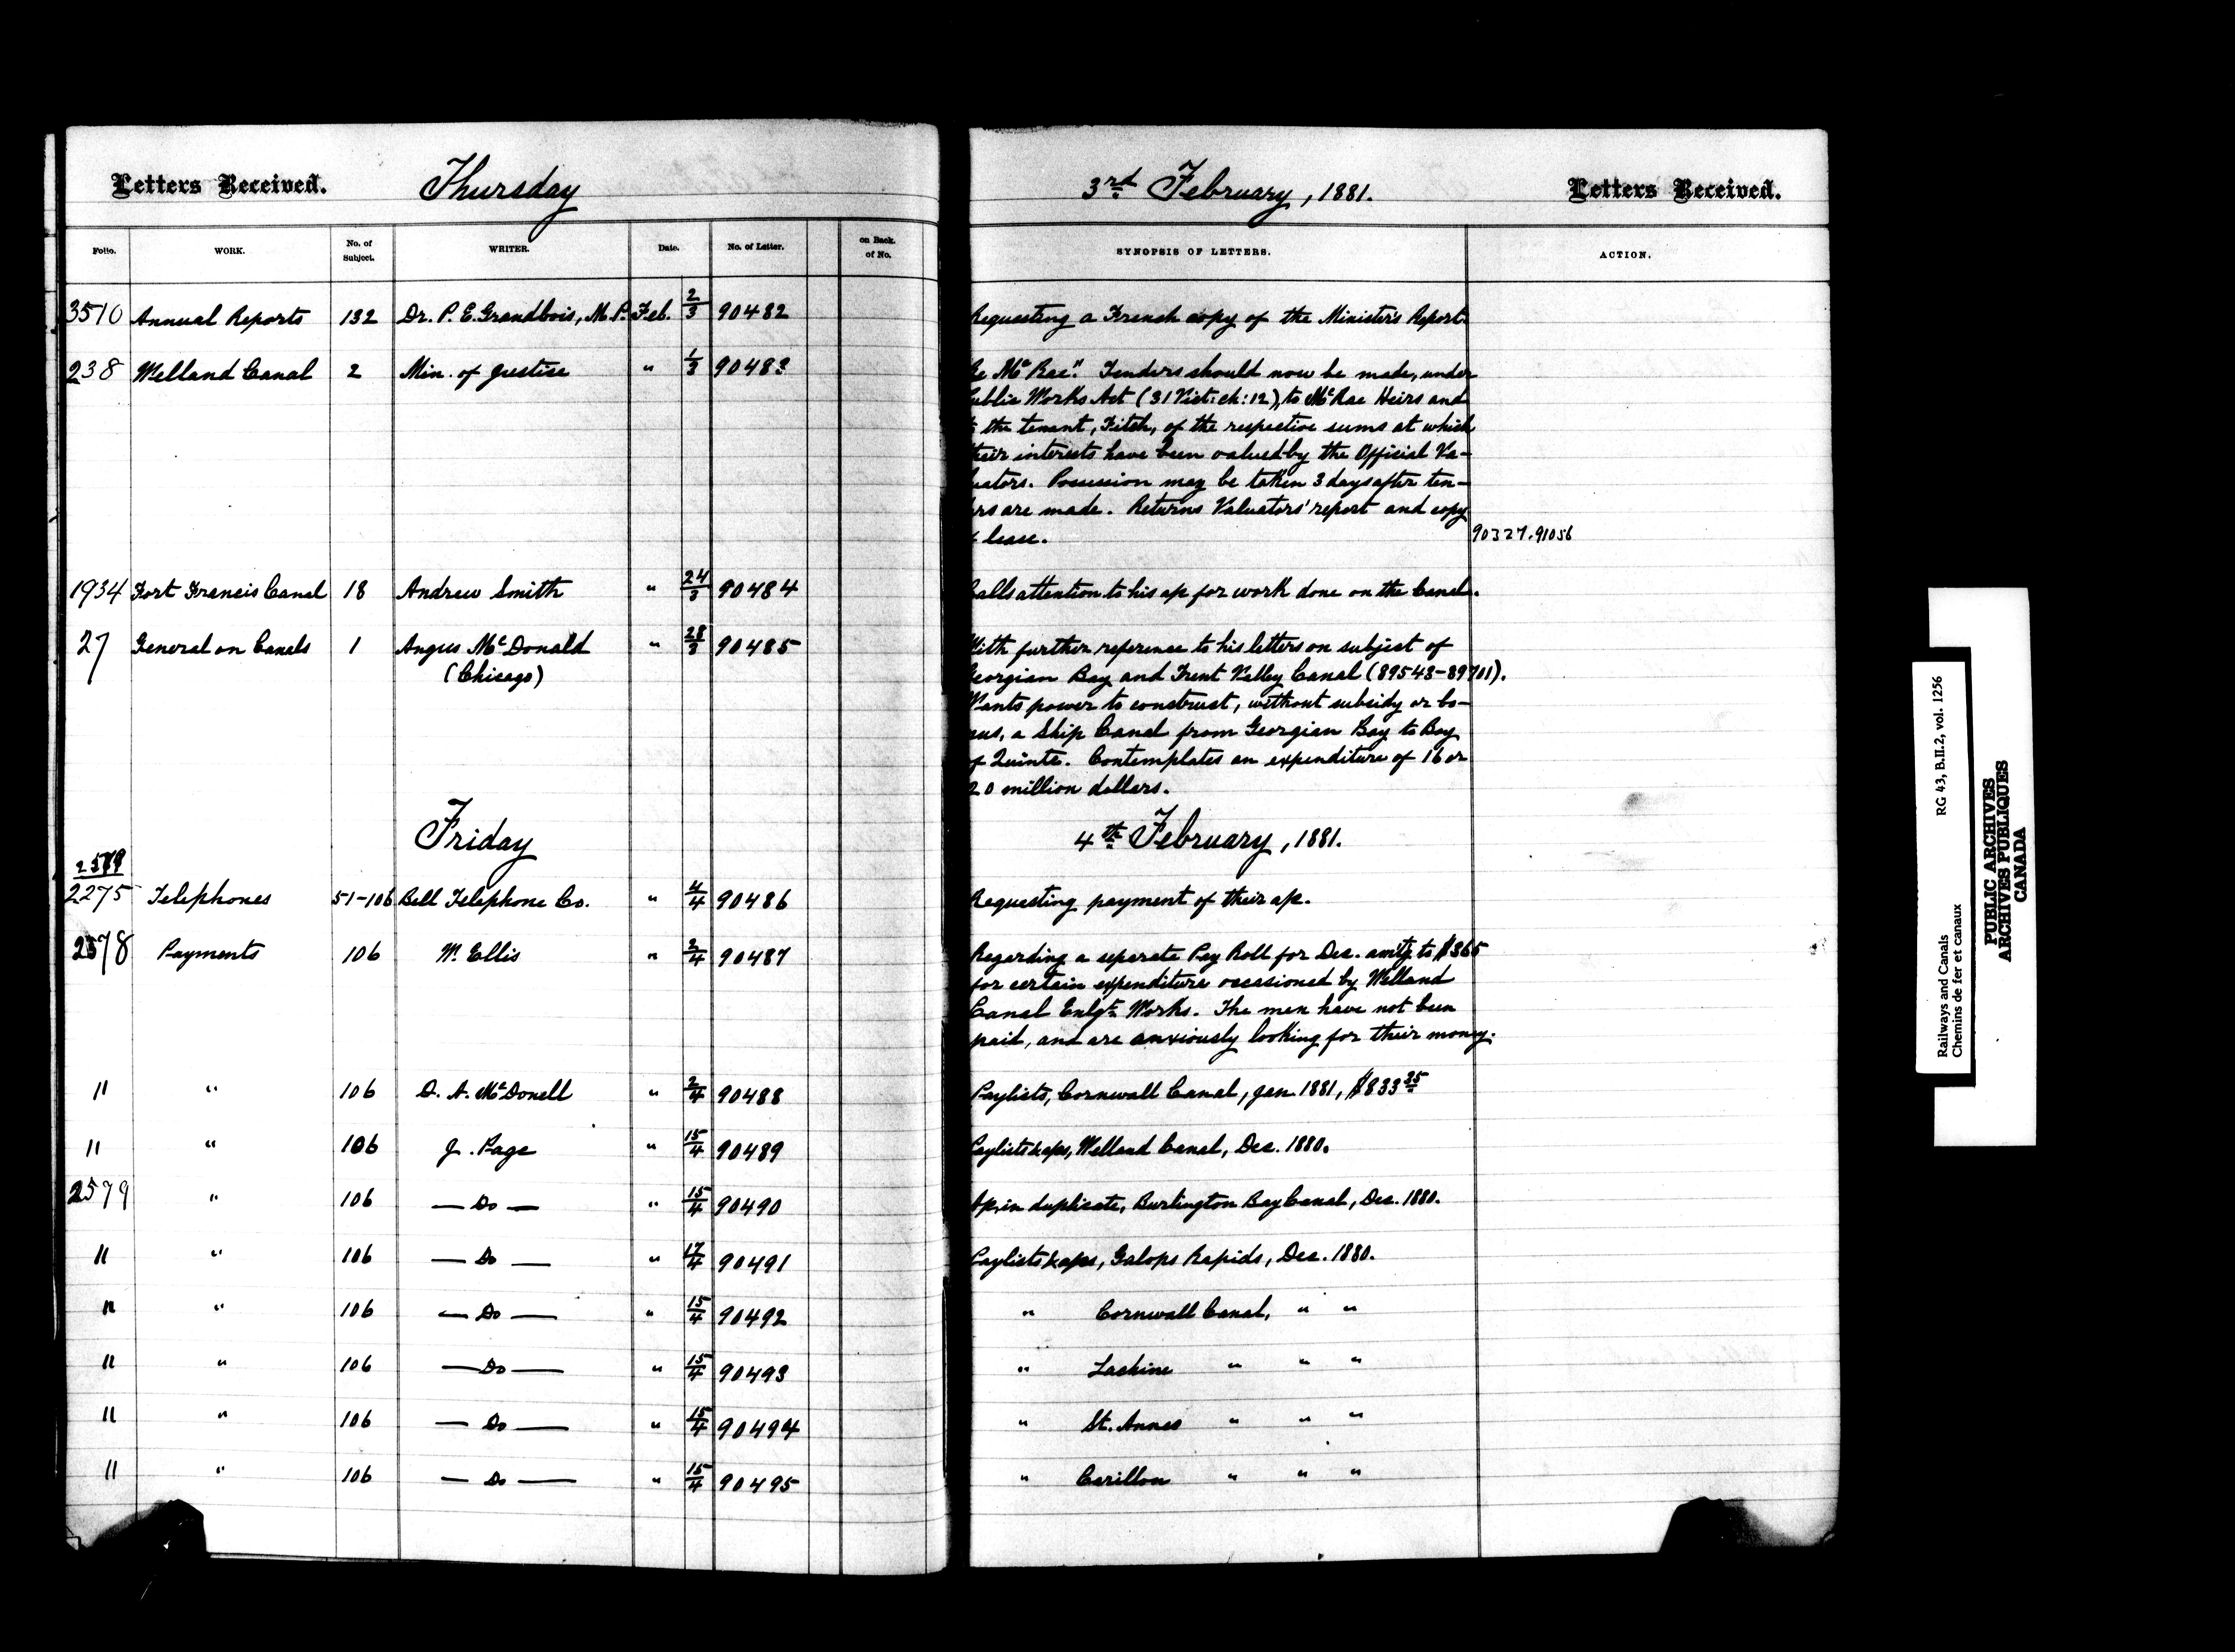 Letters Received. Thursday 3rd February, 1881. Letters Received.
Folio. WORK. No. of Subject. WRITER. Date. No. of Letter. on Back. of No. SYNOPSIS OF LETTERS. ACTION.
3510 Annual Reports 132 Dr. P. E. Grandbois, M.P. Feb. 2/3 90482 Requesting a French copy of the Minister's Report.
238 Welland Canal 2 Min. of Justice " 1/3 90483 Re McRae". Tenders should now be made, under
Public Works Act (31 Vict: ch: 12), to McRae Heirs and
to the tenant, Fitch, of the respective sums at which
their interests have been valued by the Official Va-
luators. Possession may be taken 3 days after ten-
ders are made. Returns Valuators' report and copy
of lease. 90327.91056
1934 Fort Francis Canal 18 Andrew Smith " 24/3 90484 Calls attention to his a/c for work done on the Canal.
27 General on Canals 1 Angus McDonald " 28/3 90485 With further reference to his letters on subject of
(Chicago) Georgian Bay and Trent Valley Canal (89543-89701).
Wants power to construct, without subsidy or bo-
nus, a Ship Canal from Georgian Bay to Bay
of Quinte. Contemplates an expenditure of 16 or
20 million dollars.
Friday 4th February, 1881.
2579
2275 Telephones 51-106 Bell Telephone Co. " 4/4 90486 Requesting payment of their a/c.
2578 Payments 106 W. Ellis " 2/4 90487 Regarding a separate Pay Roll for Dec. amtg to $365
for certain expenditure occasioned by Welland
Canal Enlgt. Works. The men have not been
paid, and are anxiously looking for their money.
" " 106 D. A. McDonell " 2/4 90488 Paylists, Cornwall Canal, Jan. 1881, $833 25
" " 106 J. Page " 15/4 90489 Paylists & a/cs, Welland Canal, Dec. 1880.
2579 " 106 — Do — " 15/4 90490 A/c, in duplicate, Burlington Bay Canal, Dec. 1880.
" " 106 — Do — " 17/4 90491 Paylists & a/cs, Galops Rapids, Dec. 1880.
" " 106 — Do — " 15/4 90492 " Cornwall Canal, " "
" " 106 — Do — " 15/4 90493 " Lachine " " "
" " 106 — Do — " 15/4 90494 " St. Annes " " "
" " 106 — Do — " 15/4 90495 " Carillon " " "
Railways and Canals RG 43, B.II.2, vol. 1256
Chemins de fer et canaux
PUBLIC ARCHIVES
ARCHIVES PUBLIQUES
CANADA